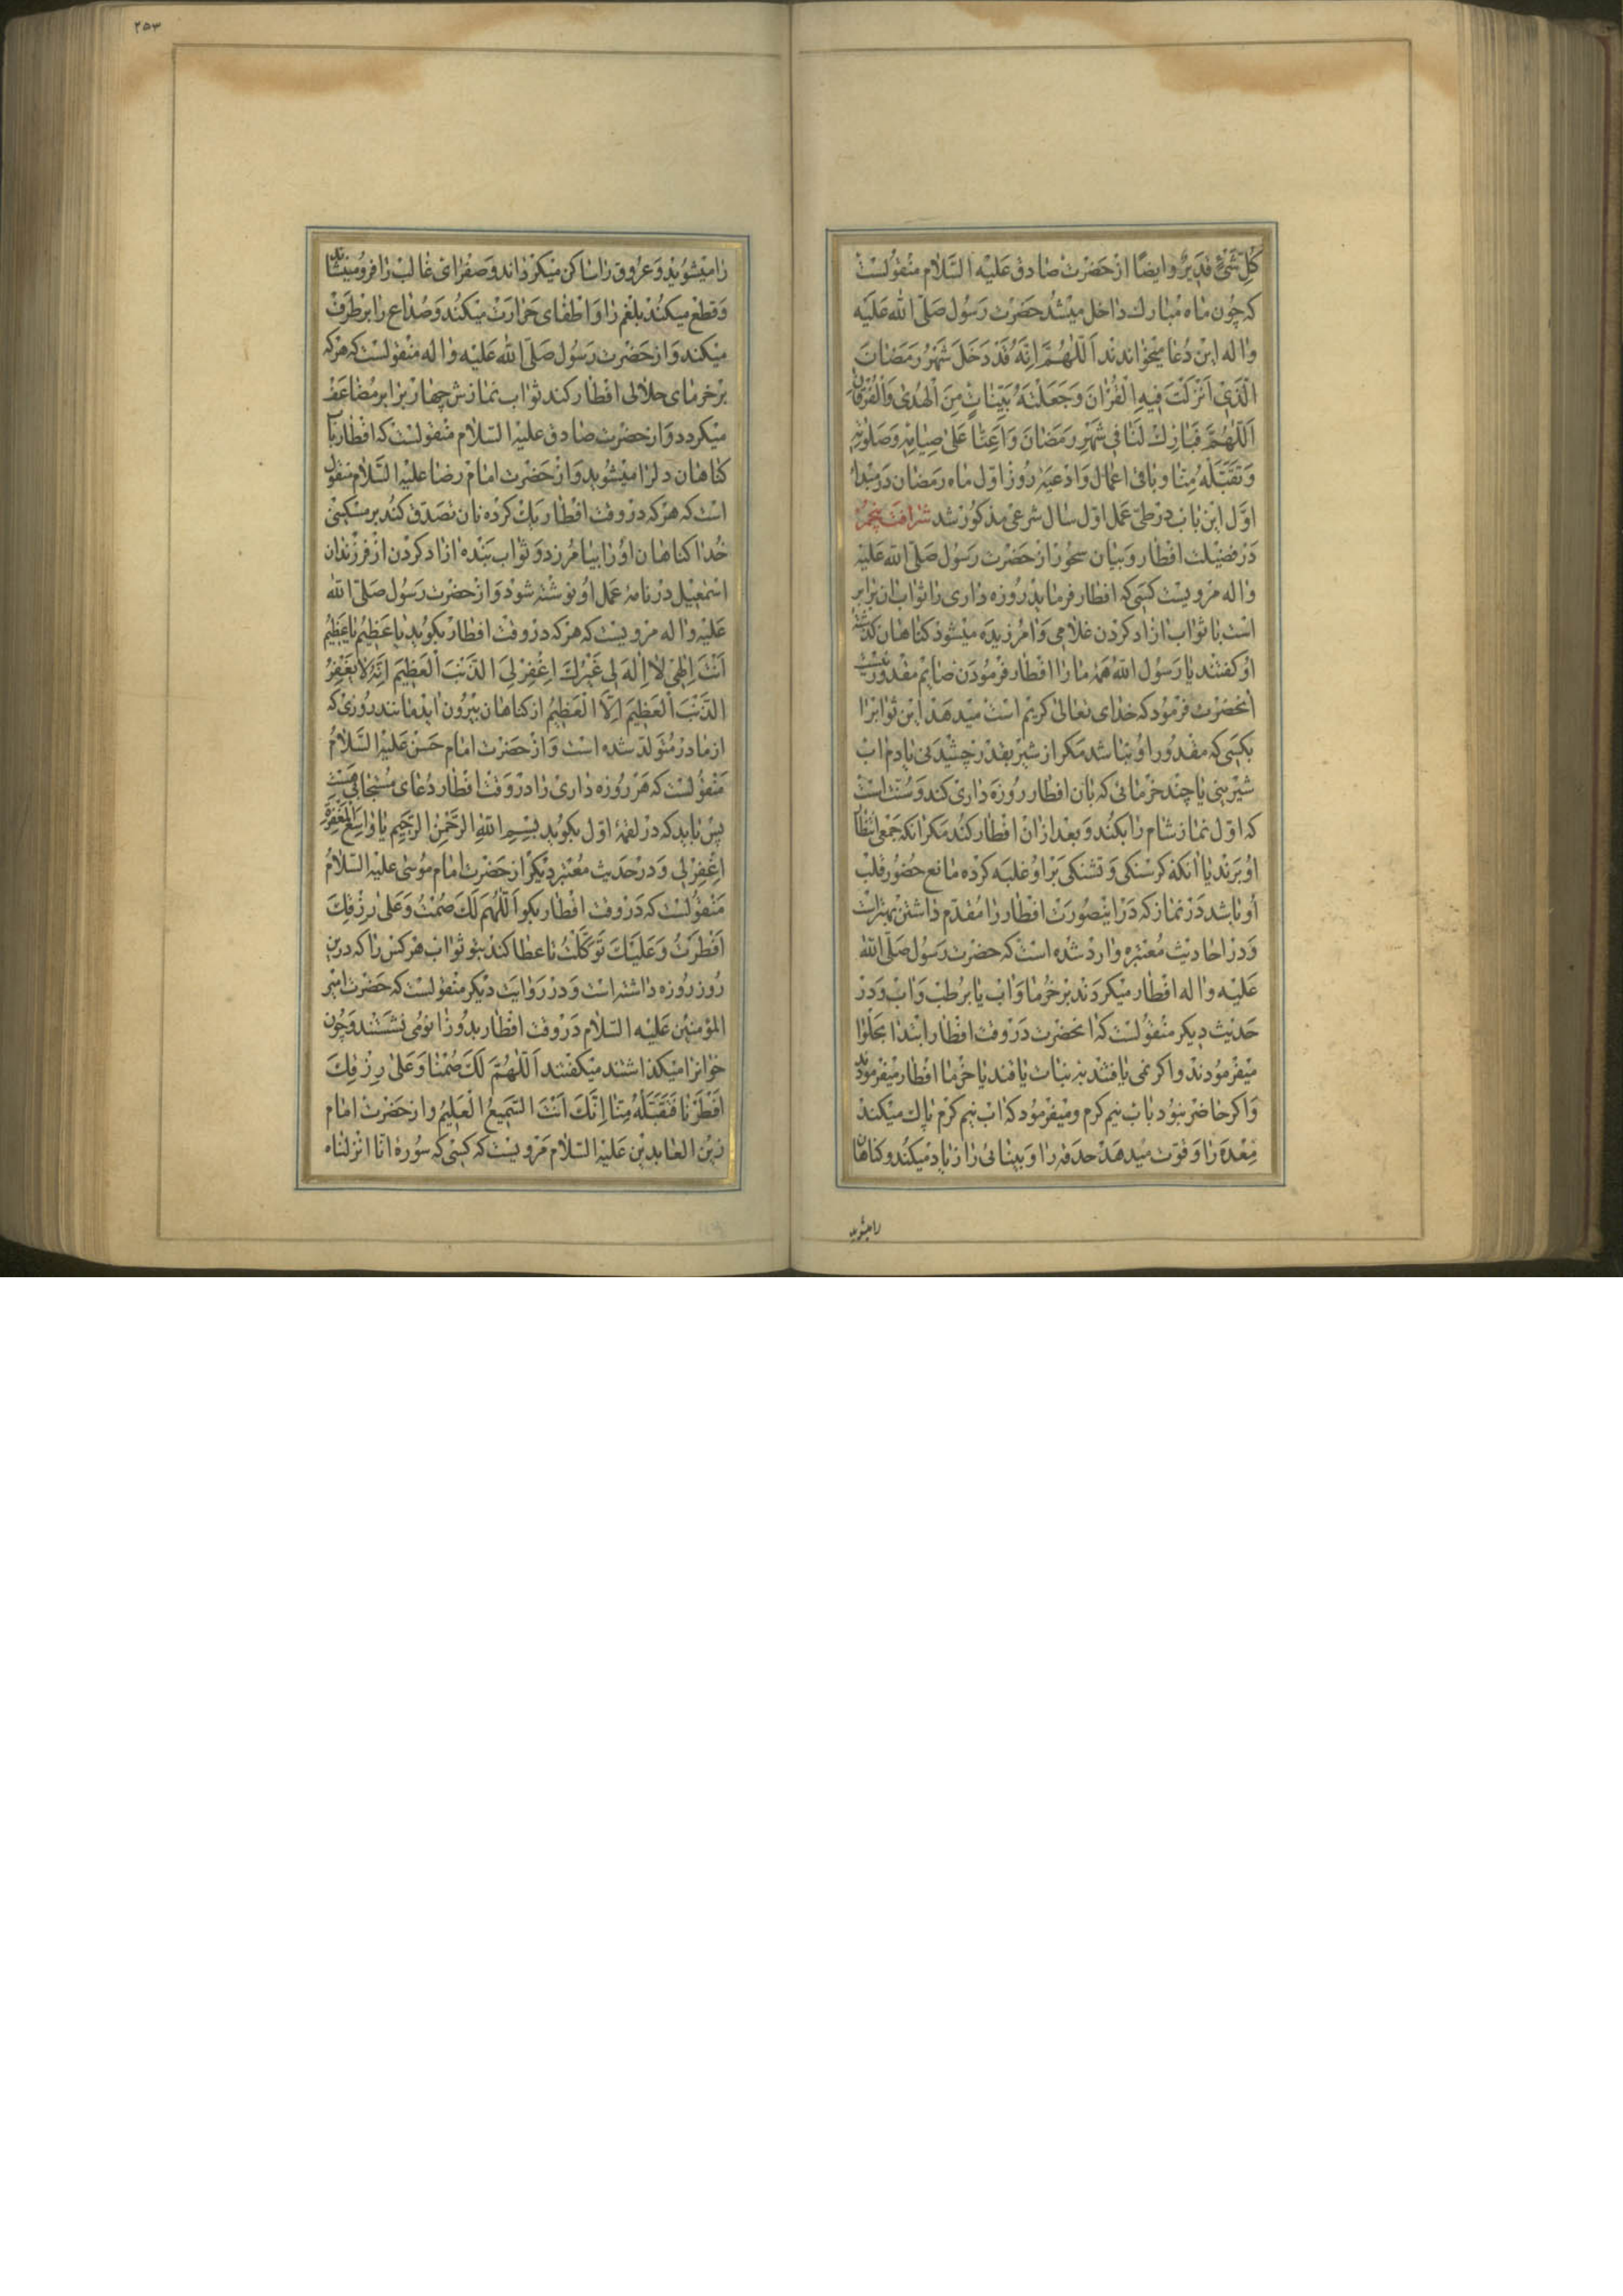 كُلِّ شَيْءٍ قَدِيرٌ وايضًا از حَضرت صادق عَلَيْه السَّلام منقولست
كه چون ماه مبارك داخل ميشد حَضرت رَسول صَلّى الله عَليَه
واله اين دُعا ميخواندند اَللّٰهُمَّ اِنَّهُ قَدْ دَخَلَ شَهْرُ رَمَضٰانَ
الَّذي اَنْزَلْتَ فيهِ الْقُرْاٰنَ وَجَعَلْتَهُ بَيِّنٰاتٍ مِنَ الْهُدىٰ وَالْفُرْقٰانِ
اَللّٰهُمَّ فَبٰارِكْ لَنٰا في شَهْرِ رَمَضٰانَ وَاَعِنّٰا عَلىٰ صِيٰامِهِ وَصَلَوٰتِهِ
وَتَقَبَّلْهُ مِنّٰا وباقى اعمال وادعيهٔ روز اوّل ماه رمضان در مبدا
اوّل اين باب در طى عمل اوّل سال شرعى مذكور شد شرافت پنجم
در فضيلت افطار وبيان سحور از حضرت رَسول صَلّى الله عَليْه
واله مرويست كسى كه افطار فرمايد روزه دارى را ثواب ان برابر
است با ثواب ازاد كردن غلامى وامرزيده ميشود كناهان كذشته
او كفتند يا رسول الله همهٔ ما را افطار فرمودن صايم مقدور نيست
انحضرت فرمود كه خداى تعالى كريم است ميدهد اين ثوابرا
بكسى كه مقدور او نباشد مكر از شير بقدر چشيدنى يا دم اب
شيرينى يا چند خرمائى كه بان افطار روزه دارى كند وسنت است
كه اوّل نماز شام را بكند وبعد از ان افطار كند مكر انكه جمعى انتظار
او برند يا انكه كرسنكى وتشنكى بر او غلبه كرده مانع حضور قلب
او باشد در نماز كه در اينصورت افطار را مقدّم داشتن بهتر است
ودر احاديث معتبره وارد شده است كه حضرت رسول صَلّى الله
عَليْه واله افطار ميكردند بر خرما واب يا بر رطب واب ودر
حديث ديكر منقولست كه انحضرت در وقت افطار ابتدا بحلوا
ميفرمودند واكر نمى يافتند به نبات يا قند يا خرما افطار ميفرمودند
واكر حاضر نبود باب نيم كرم وميفرمود كه اب نيم كرم پاك ميكند
معده را وقوّت ميدهد حدقه را وبينائى را زياد ميكند وكناهان
راميشويد
۲۵۳
را ميشويد وعروق را ساكن ميكرداند وصفراى غالب را فرو مينشاند
وقطع ميكند بلغم را واطفاى حرارت ميكند وصداع را بر طرف
ميكند واز حضرت رسول صلّى الله عَليْه واله منقولست كه هر كه
بر خرماى حلالى افطار كند ثواب نمازش چهار برابر مضاعف
ميكردد واز حضرت صادق عليه السّلام منقولست كه افطار باب
كناهان دلرا ميشويد واز حضرت امام رضا عليه السَّلام منقول
است كه هر كه در وقت افطار بيك كرده نان تصدّق كند بر مسكينى
خدا كناهان او را بيامرزد وثواب بنده ازاد كردن از فرزندان
اسمعيل در نامهٔ عمل او نوشته شود واز حضرت رسول صلّى الله
عليه واله مرويست كه هر كه در وقت افطار بكويد يٰا عَظيمُ يٰا عَظيمُ
اَنْتَ اِلٰهي لاٰ اِلٰهَ لي غَيْرُكَ اِغْفِرْ لِيَ الذَّنْبَ الْعَظيمَ اِنَّهُ لاٰ يَغْفِرُ
الذَّنْبَ الْعَظيمَ اِلاَّ الْعَظيمُ از كناهان بيرون ايد مانند روزى كه
از مادر متولّد شده است واز حضرت امام حسن عليه السّلام
منقولست كه هر روزه دارى را در وقت افطار دعاى مستجابى هست
پس بايد كه در لقمهٔ اوّل بكويد بِسْمِ اللهِ الرَّحْمٰنِ الرَّحيمِ يٰا وٰاسِعَ الْمَغْفِرَةِ
اِغْفِرْ لي ودر حديث معتبر ديكر از حضرت امام موسى عليه السّلام
منقولست كه در وقت افطار بكو اَللّٰهُمَّ لَكَ صُمْتُ وَعَلىٰ رِزْقِكَ
اَفْطَرْتُ وَعَلَيْكَ تَوَكَّلْتُ تا عطا كند بتو ثواب هر كس را كه درين
روز روزه داشته است ودر روايت ديكر منقولست كه حضرت امير
المؤمنين عليه السّلام در وقت افطار بدو زانو مى نشستند وچون
خوانرا ميكذاشتند ميكفتند اَللّٰهُمَّ لَكَ صُمْنٰا وَعَلىٰ رِزْقِكَ
اَفْطَرْنٰا فَتَقَبَّلْهُ مِنّٰا اِنَّكَ اَنْتَ السَّميعُ الْعَليمُ واز حضرت امام
زين العابدين عليه السّلام مرويست كه كسى كه سوره انا انزلناه